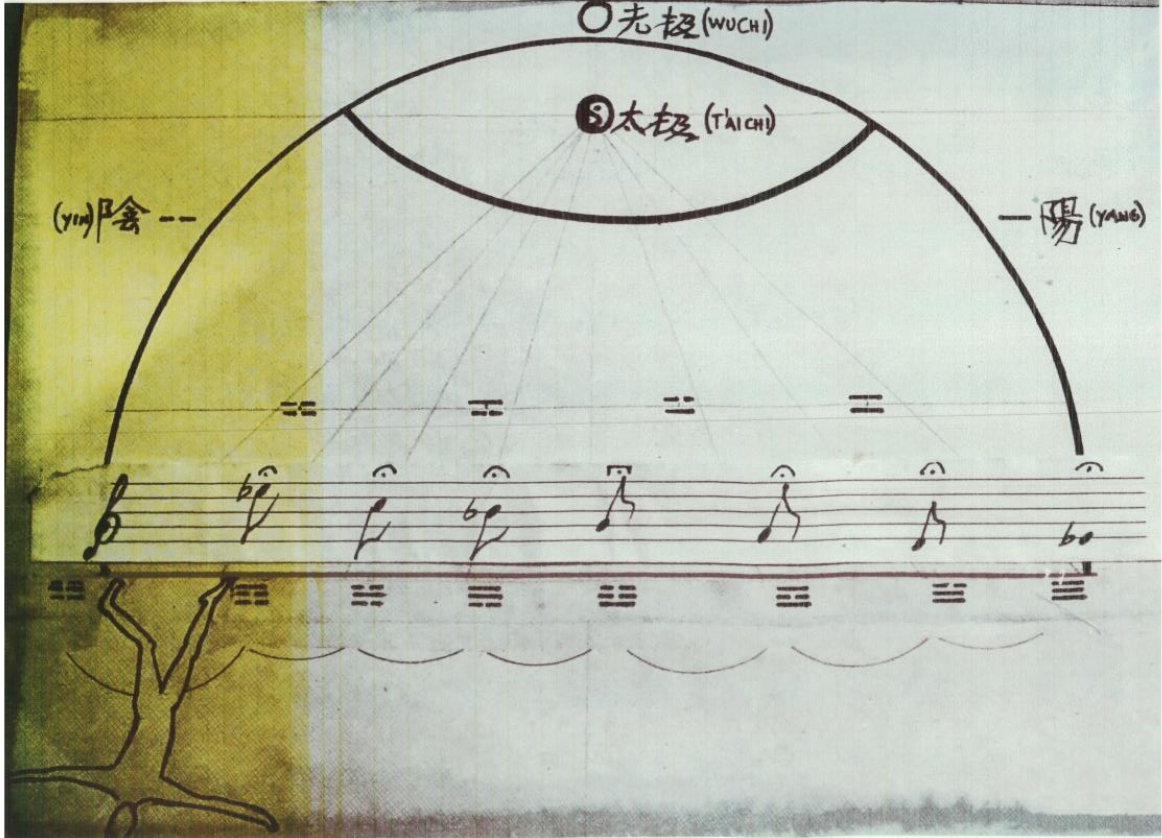 无极 (WUCHI)
太极 (T'AICHI)
(YIN) 陰 --
— 陽 (YANG)